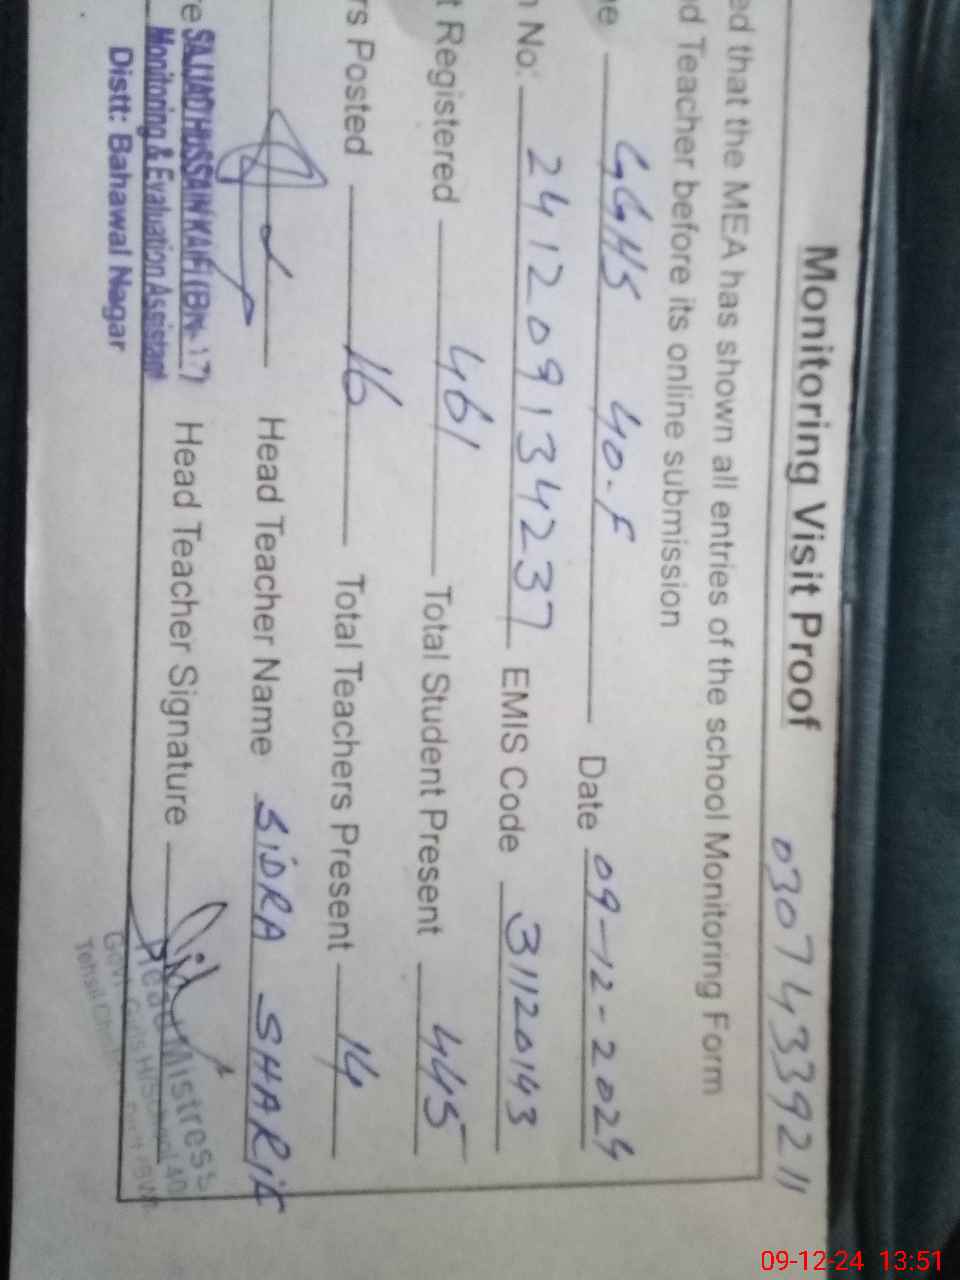 Monitoring Visit Proof 03074339211
ed that the MEA has shown all entries of the school Monitoring Form
d Teacher before its online submission
e GGHS 40-F Date 09-12-2024
No: 241209134237 EMIS Code 31120143
t Registered 461 Total Student Present 445
rs Posted 16 Total Teachers Present 14
Head Teacher Name SIDRA SHARIF
re SAJJAD HUSSAIN KAIFI (BN-17) Head Teacher Signature
Monitoring & Evaluation Assistant
Distt: Bahawal Nagar
Head Mistress
Govt. Girls High School 40
Tehsil
09-12-24 13:51